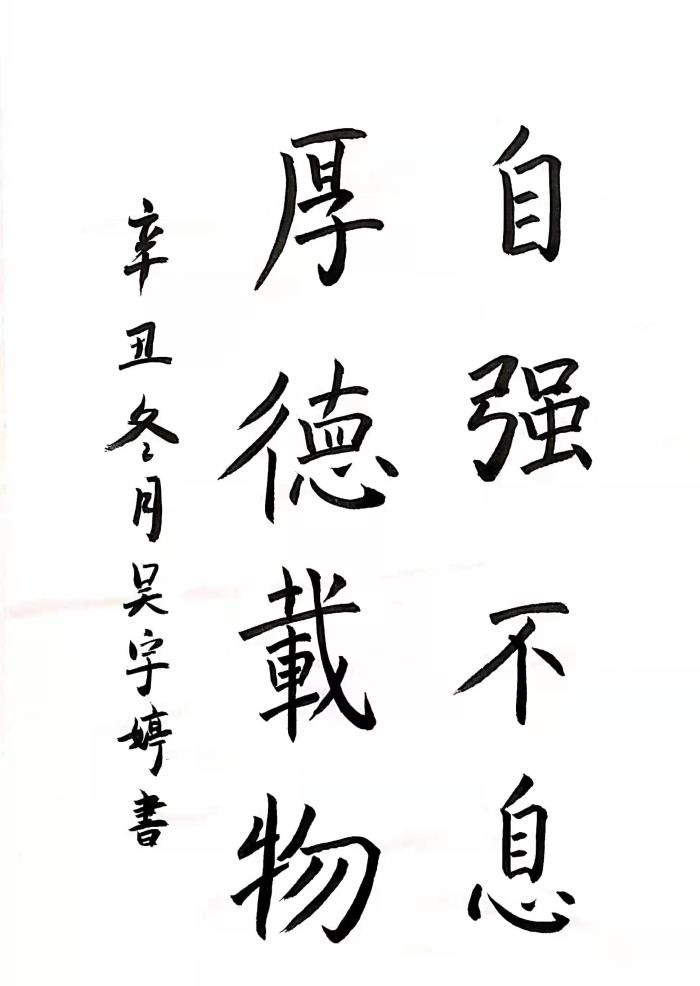 自强不息
厚德載物
辛丑冬月吴宇婷書